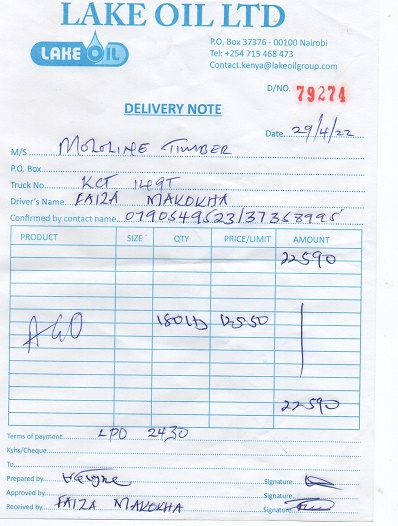 LAKE OIL LTD
LAKE OIL
P.O. Box 37376 - 00100 Nairobi
Tel: +254 715 468 473
Contact.kenya@lakeoilgroup.com
D/NO. 79274
DELIVERY NOTE
Date 29/4/22
M/S MOLOLINE TIMBER
P.O. Box
Truck No. KCT 149T
Driver's Name FAIZA MAKOKHA
Confirmed by contact name 0790549523/37368995
PRODUCT SIZE QTY PRICE/LIMIT AMOUNT
22590
AGO 180 Lts 125.50
22590
Terms of payment LPO 2430
Kshs/Cheque
To
Prepared by Signature
Approved by
Received by FAIZA MAKOKHA Signature